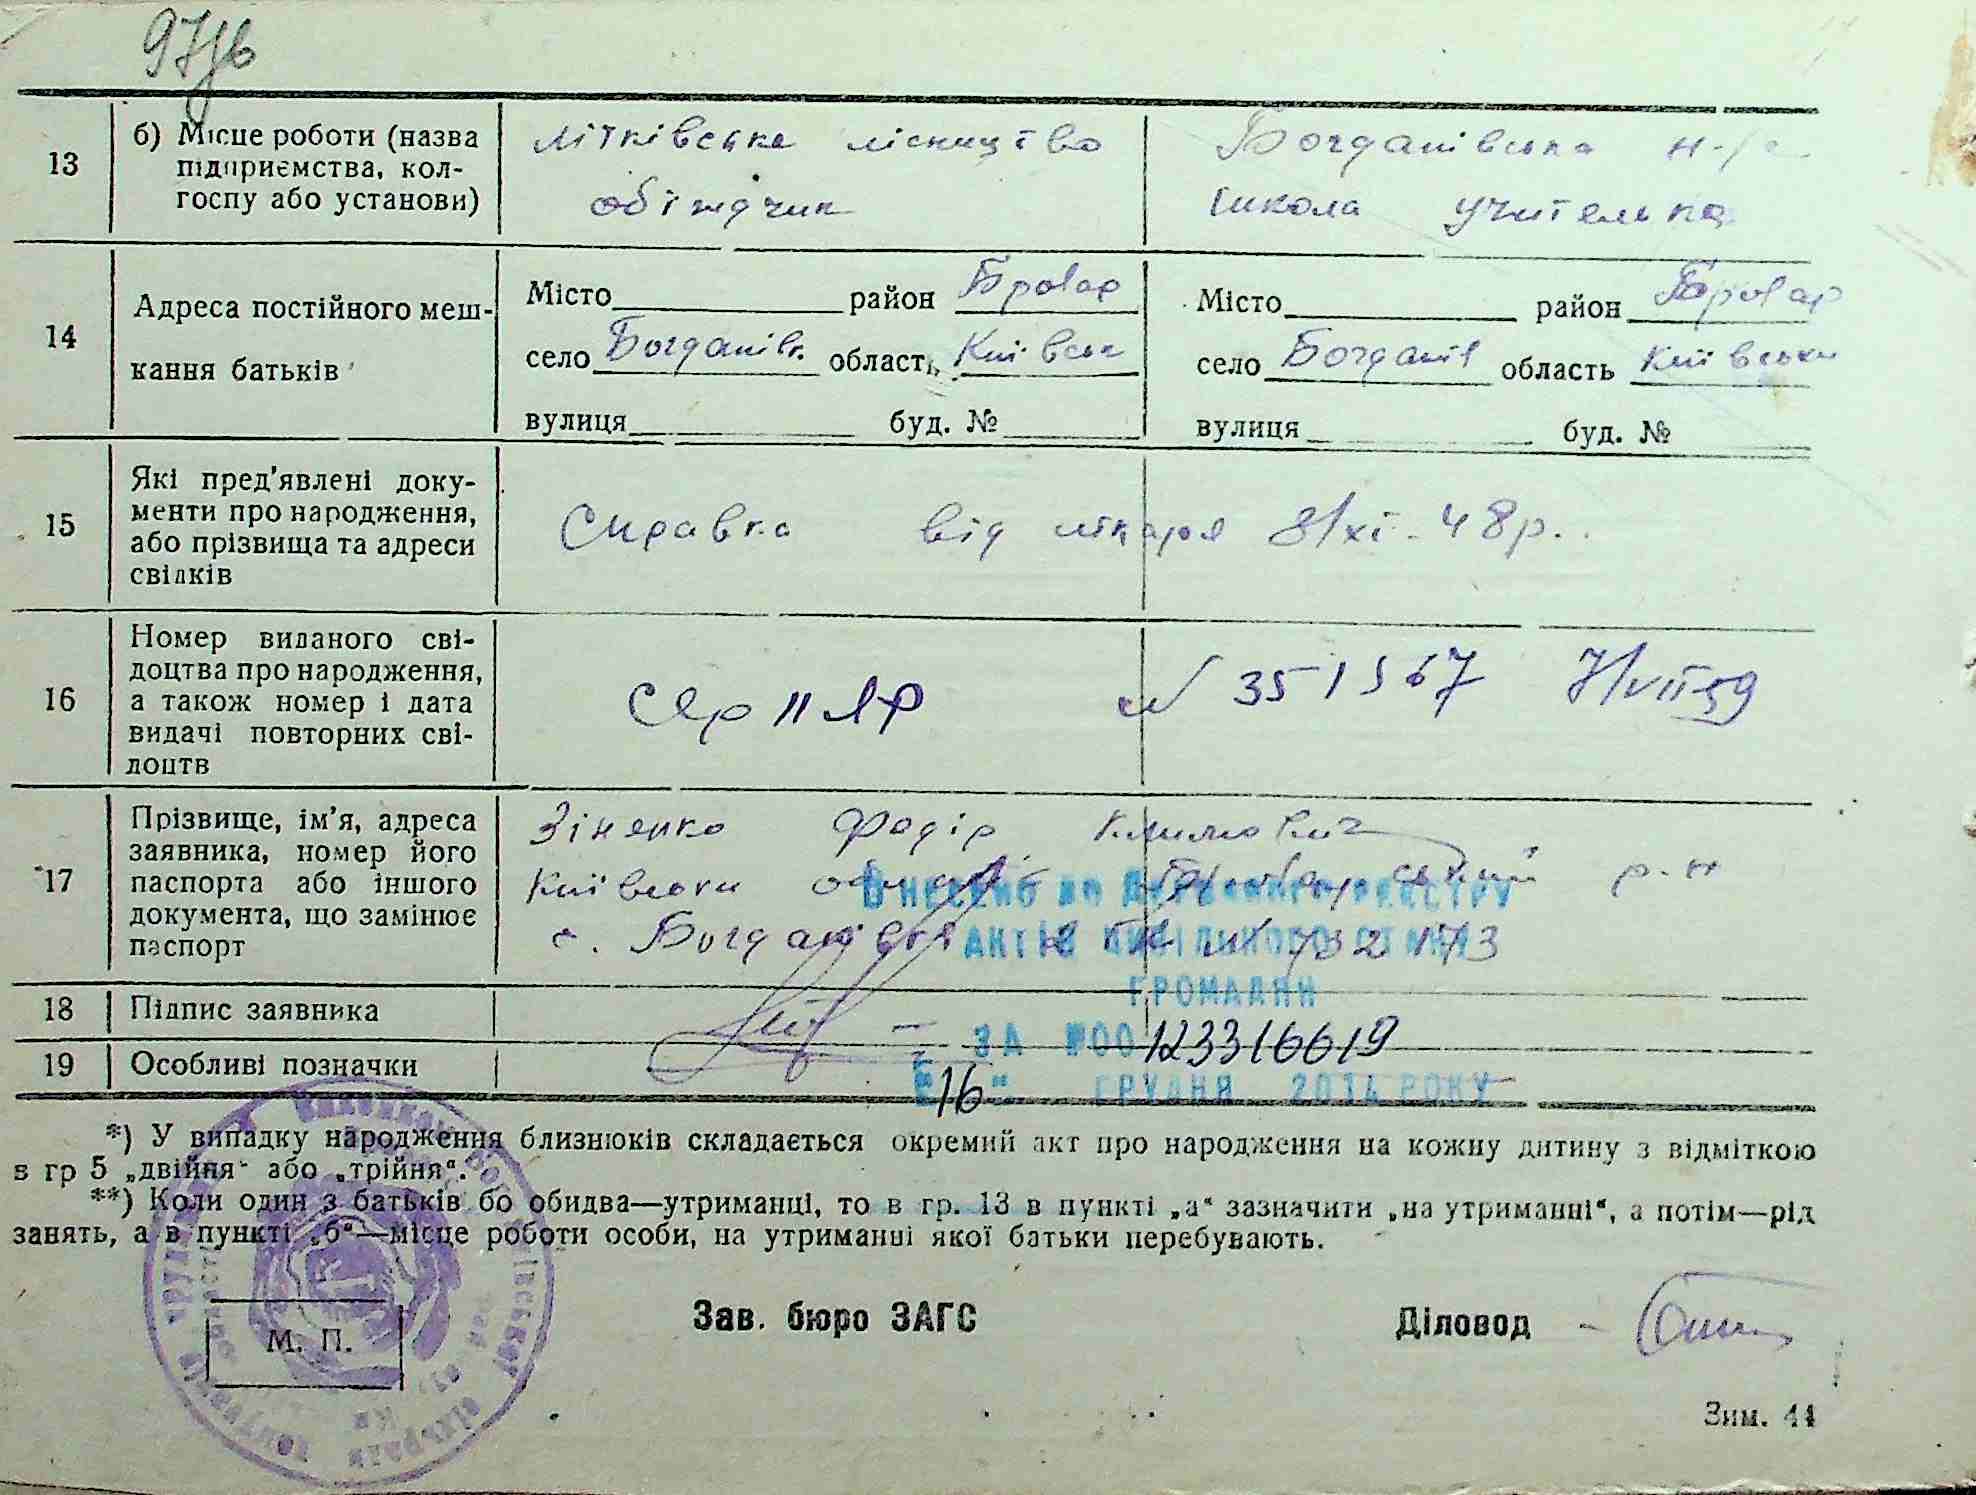 97зв
13
б) Місце роботи (назва
підприємства, кол-
госпу або установи)
Літківське лісництво
обїждчик
Богданівська н-
школа учителька
14
Адреса постійного меш-
кання батьків
Місто район Бровар
село Богданівк. область Київськ
вулиця буд. №
Місто район Бровар
село Богданів область Київськи
вулиця буд. №
15
Які пред'явлені доку-
менти про народження,
або прізвища та адреси
свідків
Справка від лікаря 8/XI-48р.
16
Номер виданого сві-
доцтва про народження,
а також номер і дата
видачі повторних сві-
доцтв
Сер II ЯР № 351567 7/VII 59
17
Прізвище, ім'я, адреса
заявника, номер його
паспорта або іншого
документа, що замінює
паспорт
Зіненко Федір Климович
Київськи област Броварський р-н
с. Богданівка 732173
ВНЕСЕНО ДО ДЕРЖАВНОГО РЕЄСТРУ
АКТІВ ЦИВІЛЬНОГО СТАНУ
ГРОМАДЯН
ЗА №00123316619
"16" ГРУДНЯ 2014 РОКУ
18 Підпис заявника
19 Особливі позначки
*) У випадку народження близнюків складається окремий акт про народження на кожну дитину з відміткою
в гр 5 „двійня" або „трійня".
**) Коли один з батьків бо обидва—утриманці, то в гр. 13 в пункті „а" зазначити „на утриманні", а потім—рід
занять, а в пункті „б"—місце роботи особи, на утриманні якої батьки перебувають.
М. П.
Зав. бюро ЗАГС
Діловод -
Зим. 44